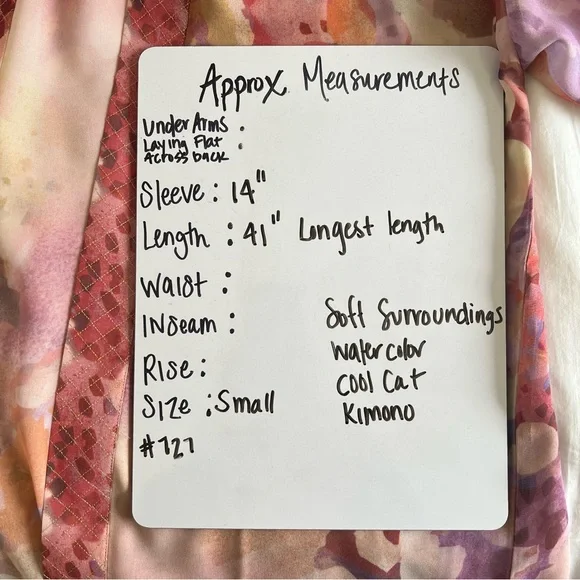 Approx Measurements
Under Arms :
Laying Flat
Across back
Sleeve : 14"
Length : 41" Longest length
Waist :
Inseam :
Soft Surroundings
Rise :
Watercolor
Cool Cat
Size : Small
Kimono
#727